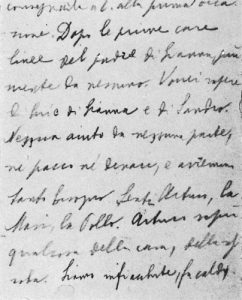 consegnate a l. alla prima occa
sione. Dopo le prime care
linee del padre di Gianna, più
niente da nessuno. Vorrei sapere
di Gianna e di Sandro.
Nessun aiuto da nessuna parte,
né pacco né denaro, e avremmo
tanto bisogno. Senti Arturo, la
Mari, la Polla. Arturo saprà
qualcosa della casa, della
roba. Siamo infiacchite, fa caldo.